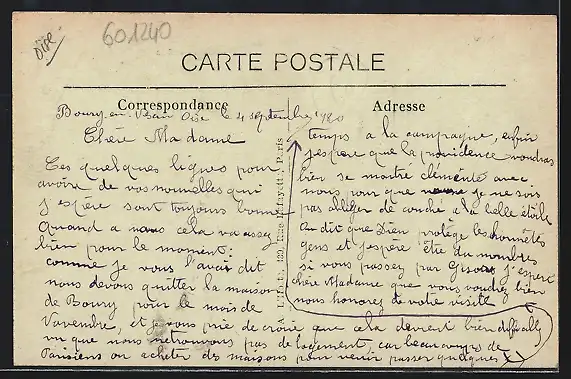 Oise
601240
CARTE POSTALE
Correspondance
Adresse
Boury-en-Vexin Oise le 4 septembre 1920
Chère Madame
Ces quelques lignes pour
avoire de vos nouvelles qui
j'espère sont toujours bonne
quand a nous cela va assez
bien pour le moment:
comme je vous l'avais dit
nous devons quitter la maison
de Boury pour le mois de
Novembre, et je vous prie de croire que cela devient bien difficille
vu que nous ne trouvons pas de logement, car beaucoups de
Parisiens on acheter des maisons pour venir passer quelques
temps a la campagne, enfin
j'espère que la providence voudras
bien se montré clémente avec
nous pour que je ne sois
pas obliger de couché a la belle étoile
On dit que Dieu protège les honnêtes
gens et j'espère être du nombres
si vous passez par Gisors j'espère
chère Madame que vous voudrez bien
nous honorez de votre visite
132, Rue Lafayette, Paris